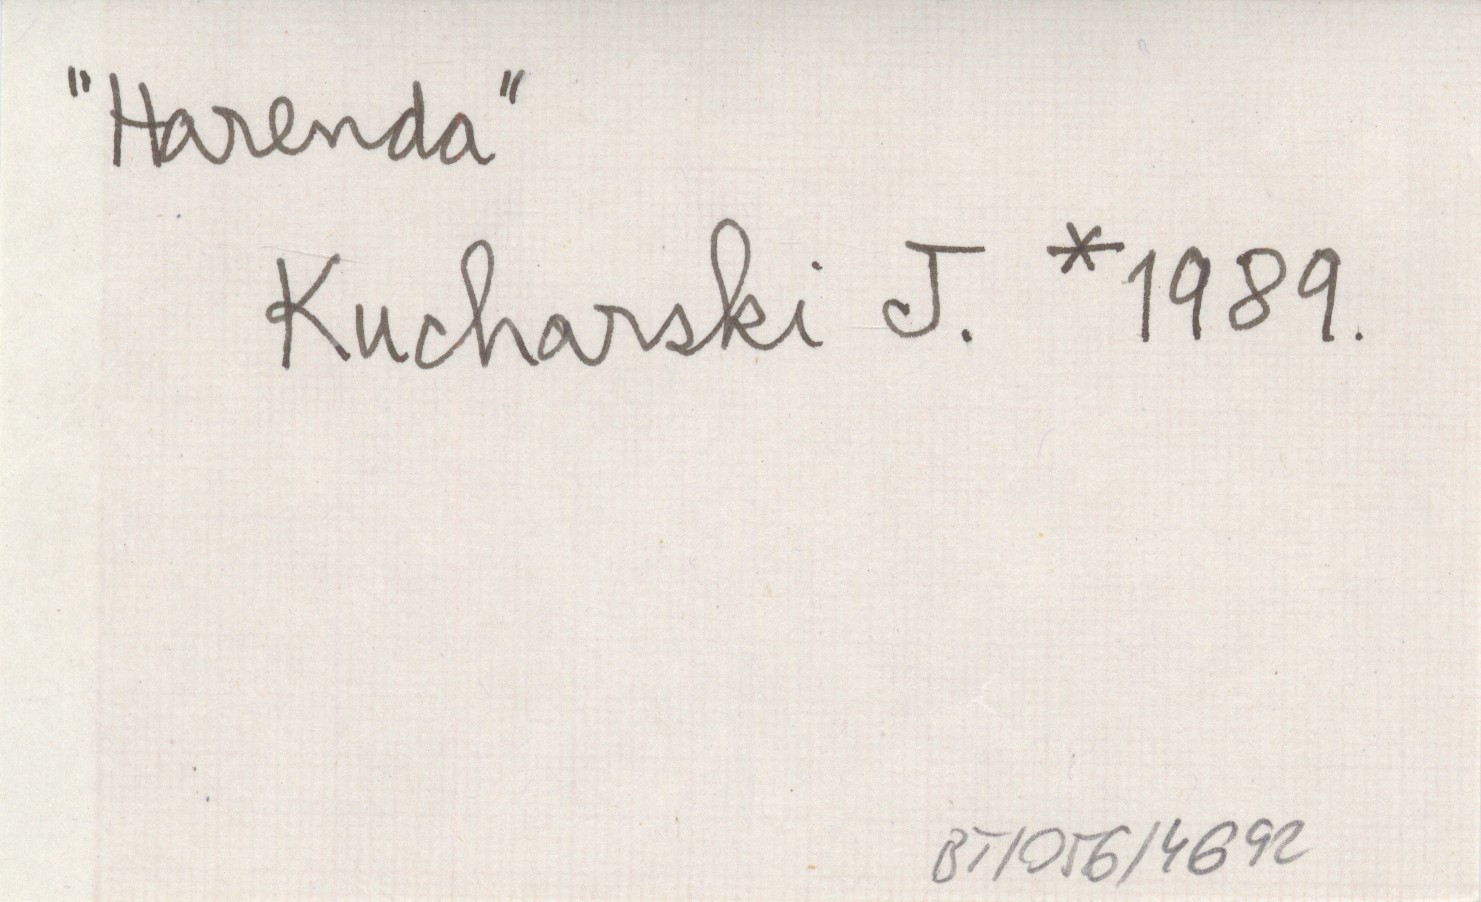 "Harenda"
Kucharski J. *1989.
BT/056/4692